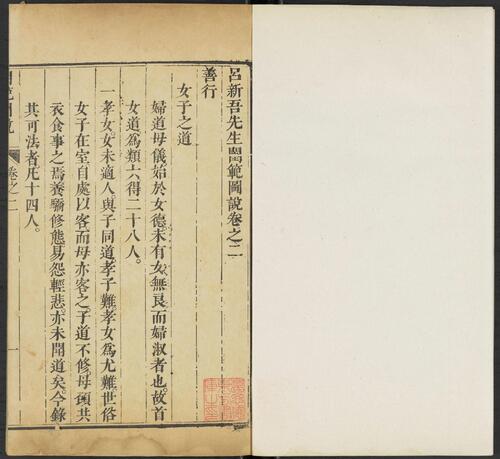 呂新吾先生閨範圖說卷之二
善行
女子之道
婦道母儀始於女德未有女無良而婦淑者也故首
女道爲類六得二十八人。
一孝女。女未適人。與子同道。孝子難。孝女爲尤難。世俗
女子在室。自處以客。而母亦客之。子道不修。母頭共
衣食事之焉。養驕修態。易怨輕悲。亦未聞道矣。今錄
其可法者。凡十四人。
卷之二
一